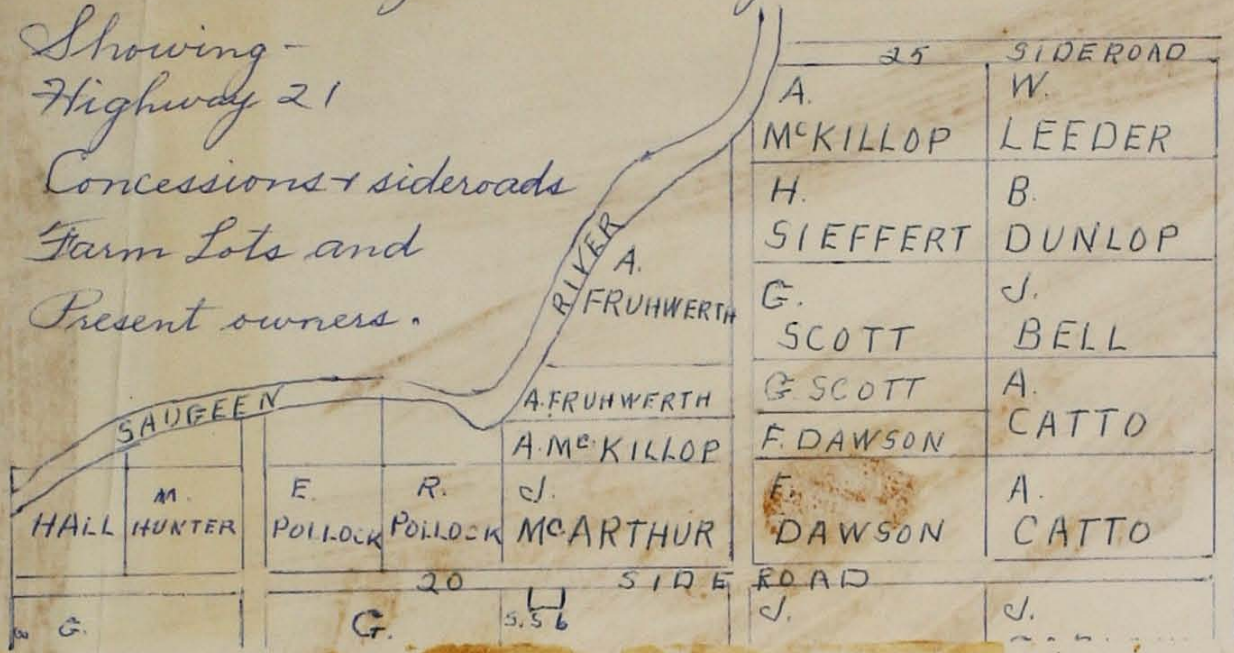 Showing -
Highway 21
Concessions & sideroads
Farm Lots and
Present owners.
25 SIDEROAD
A.
McKILLOP
W.
LEEDER
H.
SIEFFERT
B.
DUNLOP
RIVER
A.
FRUHWERTH
G.
SCOTT
J.
BELL
SAUGEEN
A. FRUHWERTH
G SCOTT
A.
CATTO
A. Mc KILLOP
F. DAWSON
HALL
M.
HUNTER
E.
POLLOCK
R.
POLLOCK
J.
McARTHUR
F.
DAWSON
A.
CATTO
20 SIDE ROAD
G.
G.
S.S 6
J.
J.